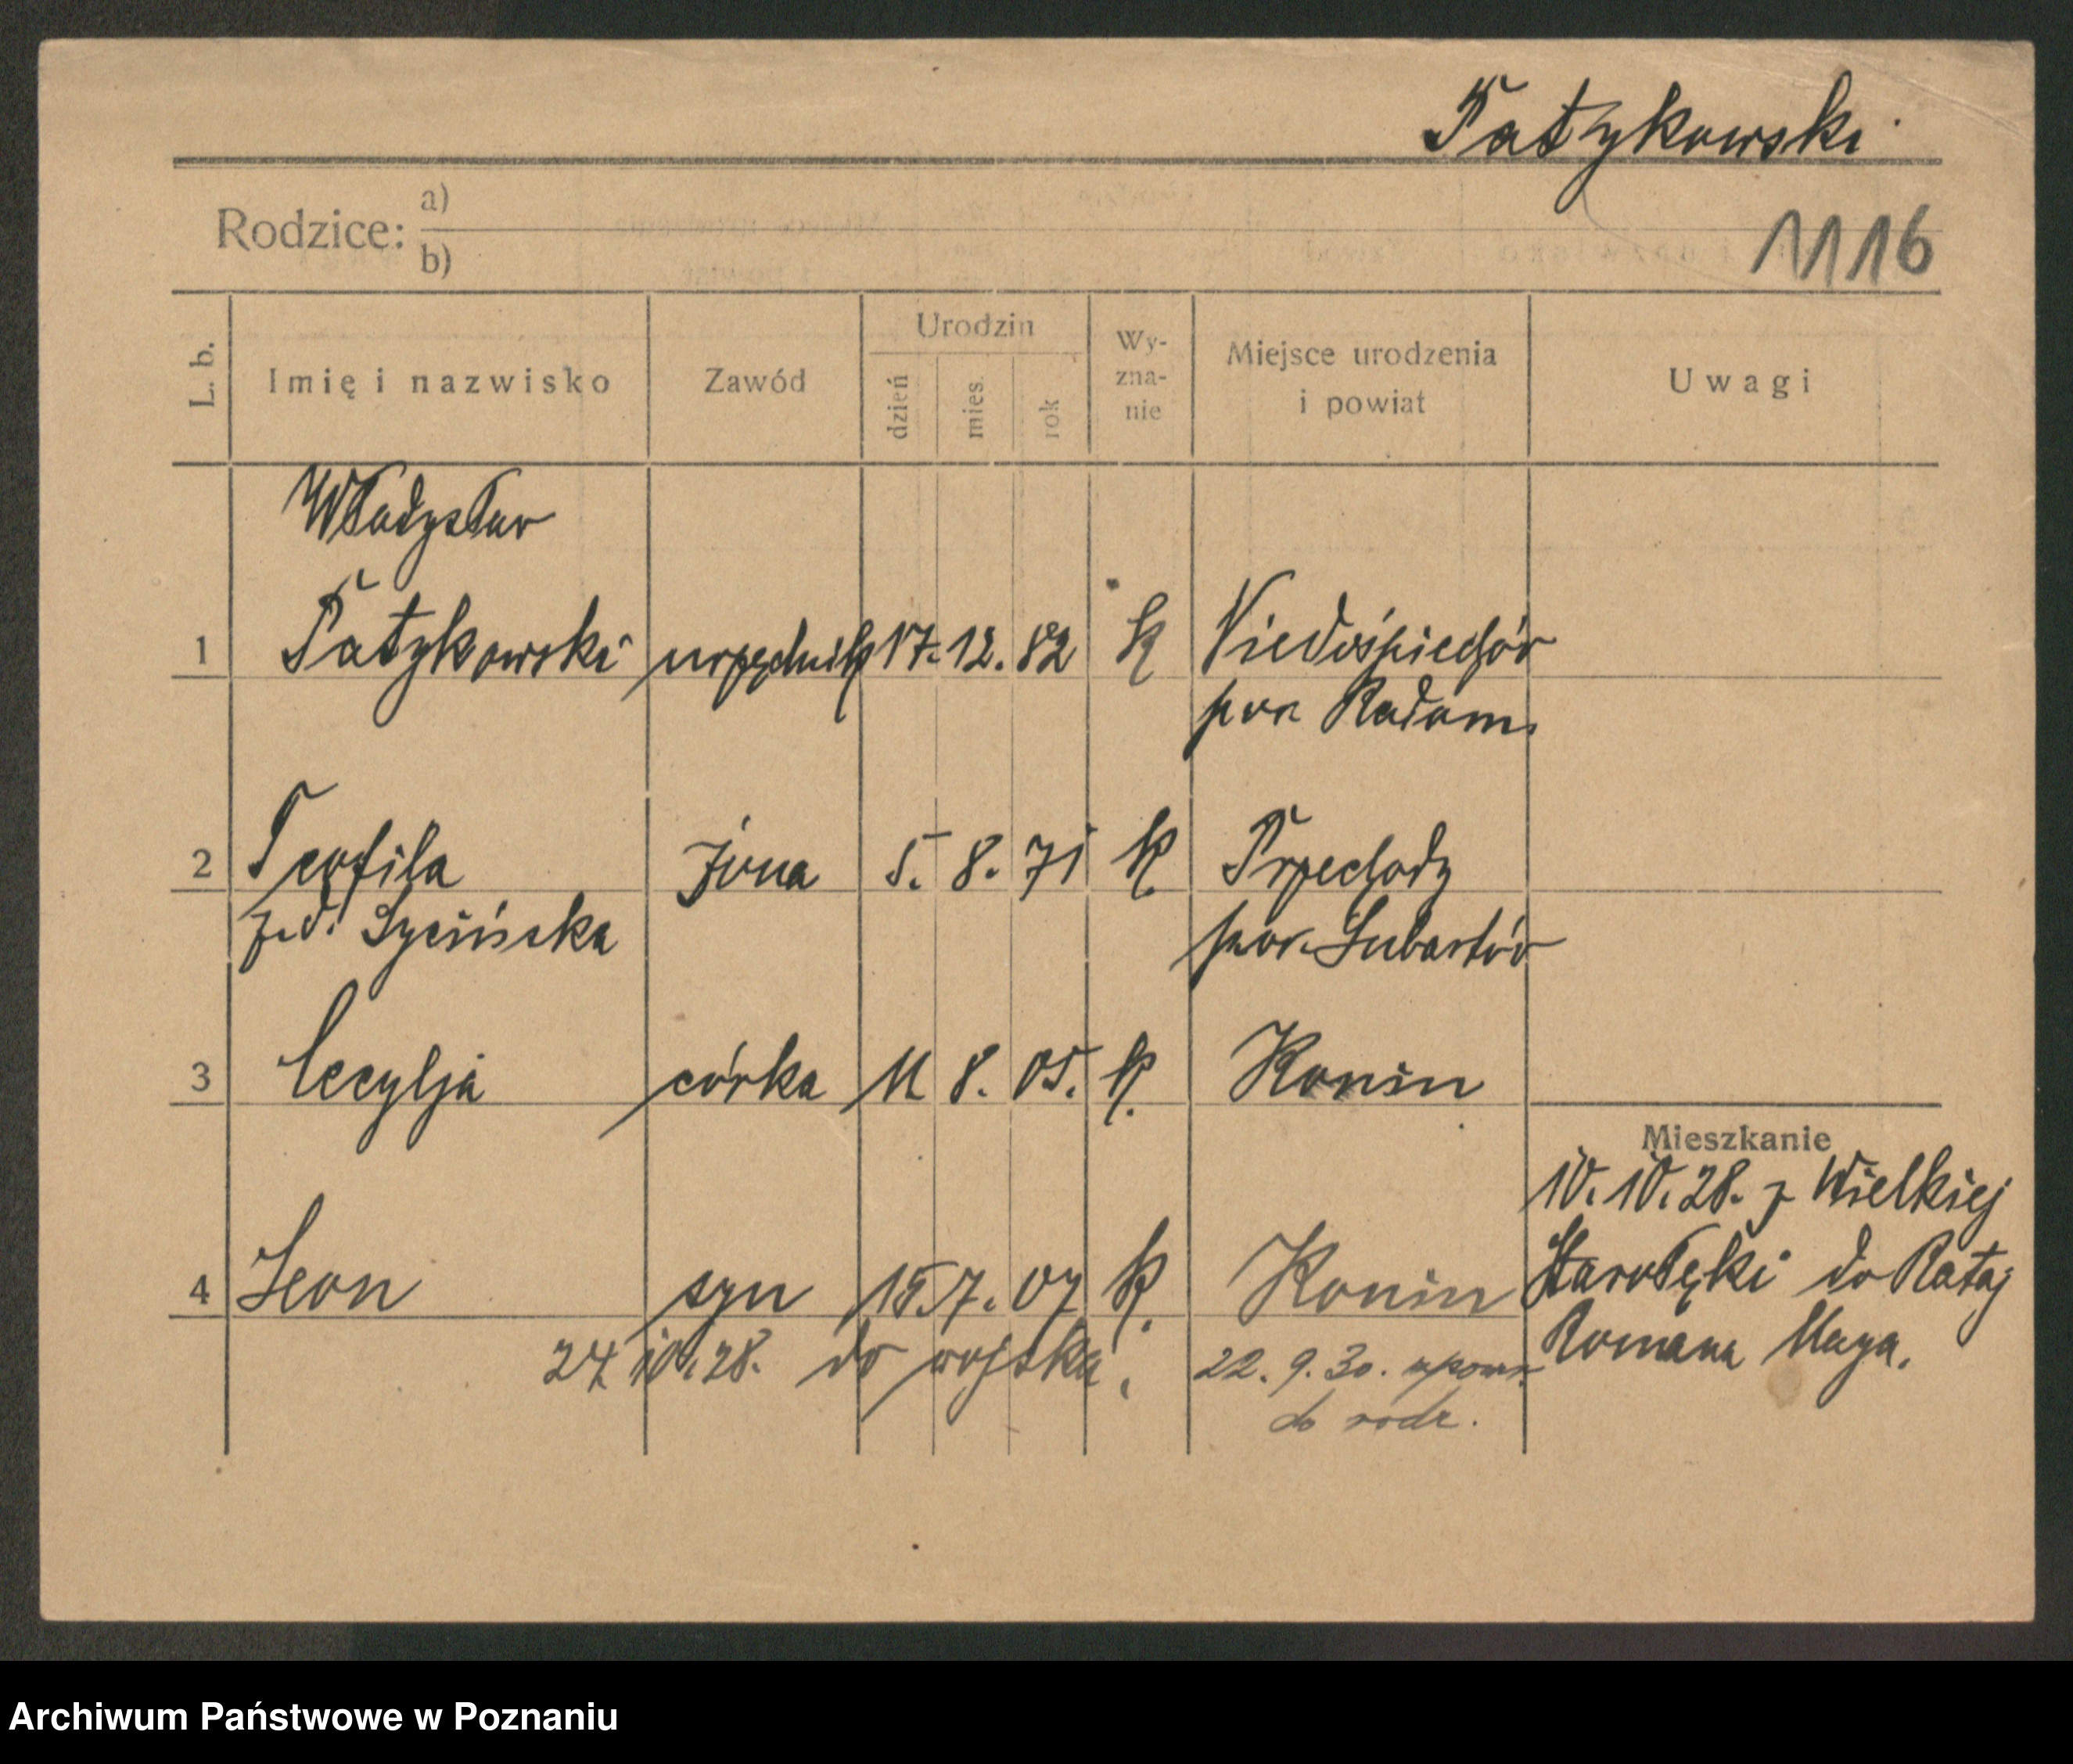 Patzykowski
Rodzice: a)
b)
1116
L. b.
Imię i nazwisko
Zawód
Urodzin
dzień
mies.
rok
Wy-
zna-
nie
Miejsce urodzenia
i powiat
Uwagi
Władysław
1 Patzykowski urzędnik 17. 12. 82 K
pow. Radom.
2 Teofila żona 5. 8. 71 K. Przechody
z d. pow. Lubartów
3 Cecylja córka 11 8. 05. K. Konin
Mieszkanie
10. 10. 28. z Wielkiej
4 Leon syn 15. 7. 07 K. Konin Starołęki do Rataj
24 10. 28. do wojska. 22. 9. 30. Romana Maya.
do rodz.
Archiwum Państwowe w Poznaniu